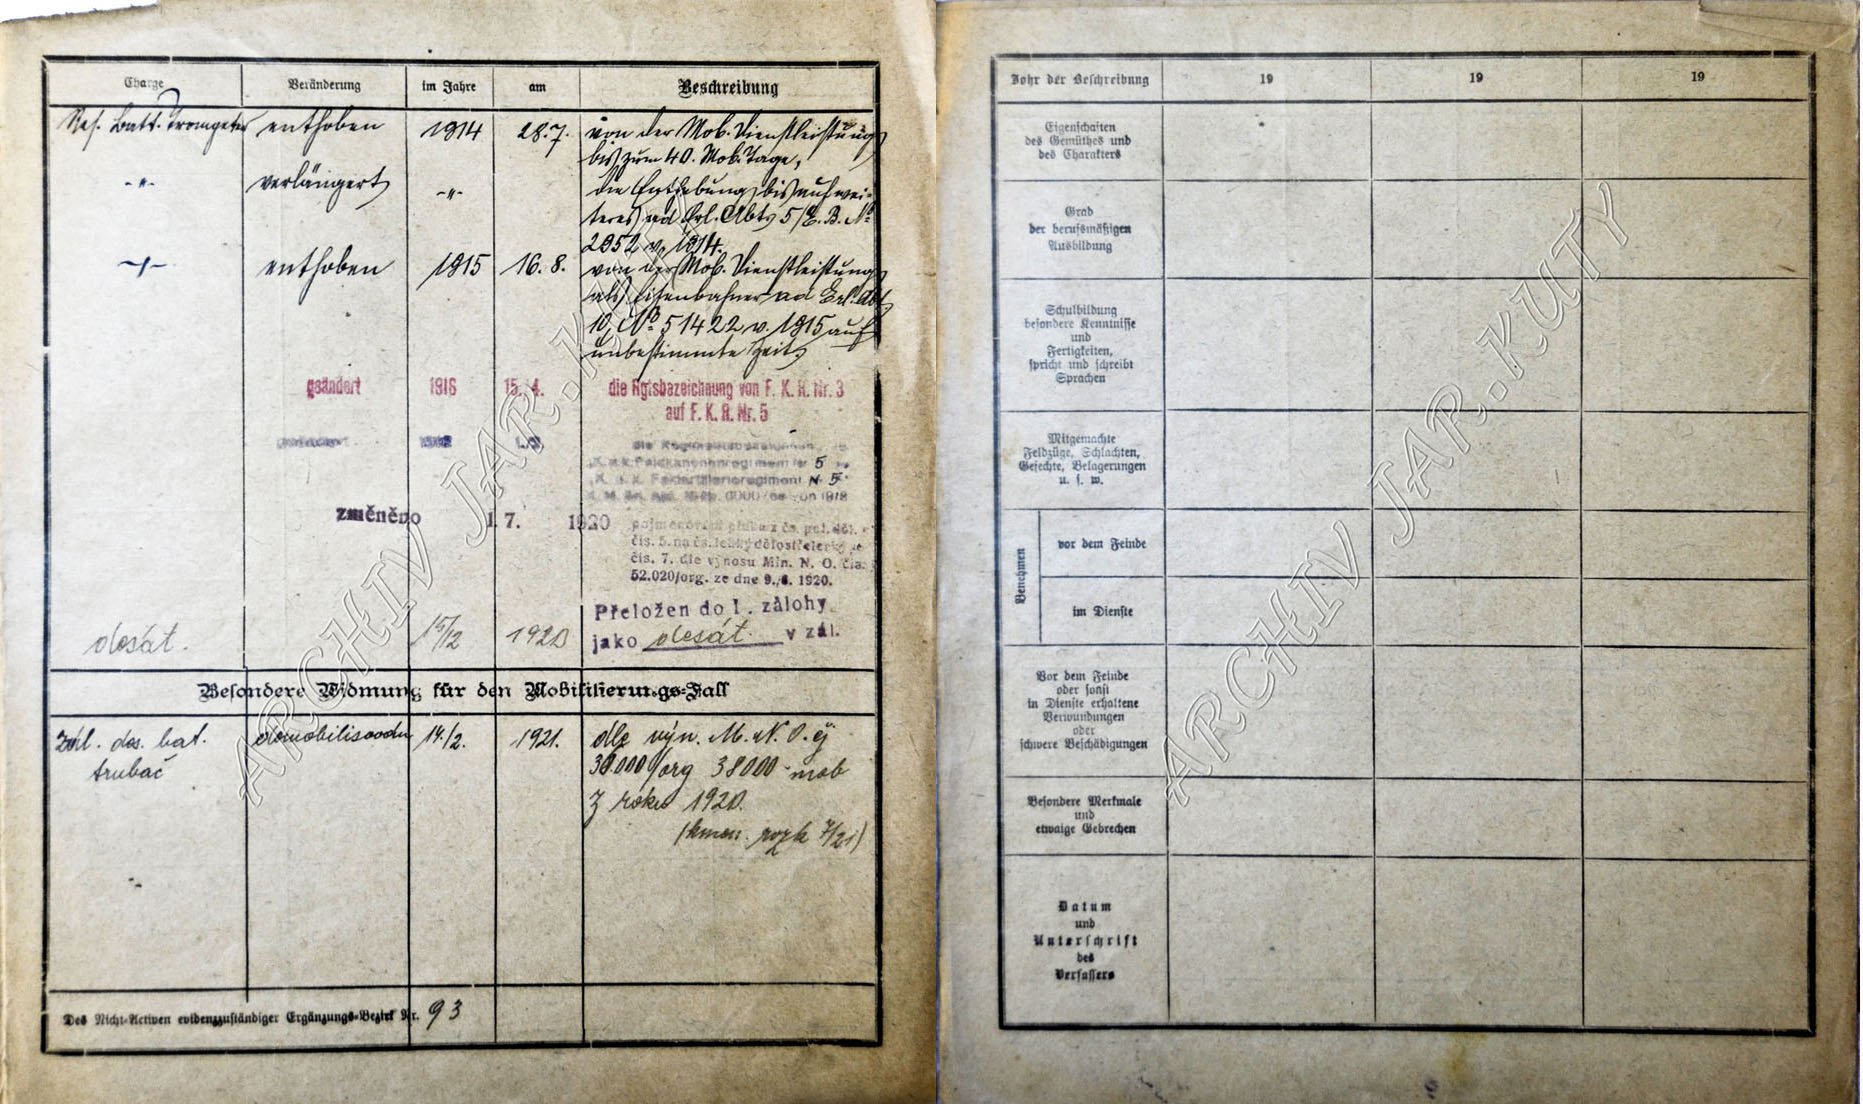 Charge Veränderung im Jahre am Beschreibung
Res. Batt. Trompeter enthoben 1914 28.7. von der Mob. Dienstleistung
bis zum 40. Mob. Tage,
-"- verlängert -"- die Enthebung bis auf wei-
teres ad Erl. Abt. 5/E. B. No
2952 v. 1914.
enthoben 1915 16. 8. von der Mob. Dienstleistung
als Eisenbahner ad Erl. Abt.
10, No 51422 v. 1915 auf
unbestimmte Zeit
geändert 1916 15. 4. die Rgtsbezeichnung von F. K. R. Nr. 3
auf F. K. R. Nr. 5
K. u. k. Feldkanonenregiment Nr 5
K. u. k. Feldartillerieregiment Nr 5
von 1918
změněno 1. 7. 1920 pojmenování pluku z čs. pol. děl.
čís. 5. na čs. lehký dělostřelecký
čís. 7. dle výnosu Min. N. O. čís.
52.020/org. ze dne 9./6. 1920.
Přeložen do I. zálohy
desát. 15/12 1920 jako desát. v zál.
Besondere Widmung für den Mobilisierungs-Fall
Zál. des. bat. demobilisován 14/2. 1921. dle výn. M. N. O. čj
trubač 38.000/org 38000-mob
z roku 1920.
(kmen. rozk 7/21)
Des Nicht-Activen evidenzzuständiger Ergänzungs-Bezirk Nr. 93
Jahr der Beschreibung 19 19 19
Eigenschaften
des Gemüthes und
des Charakters
Grad
der berufsmäßigen
Ausbildung
Schulbildung
besondere Kenntnisse
und
Fertigkeiten,
spricht und schreibt
Sprachen
Mitgemachte
Feldzüge, Schlachten,
Gefechte, Belagerungen
u. s. w.
Benehmen
vor dem Feinde
im Dienste
Vor dem Feinde
oder sonst
in Dienste erhaltene
Verwundungen
oder
schwere Beschädigungen
Besondere Merkmale
und
etwaige Gebrechen
Datum
und
Unterschrift
des
Verfassers
ARCHIV JAR. KUTY
ARCHIV JAR. KUTY